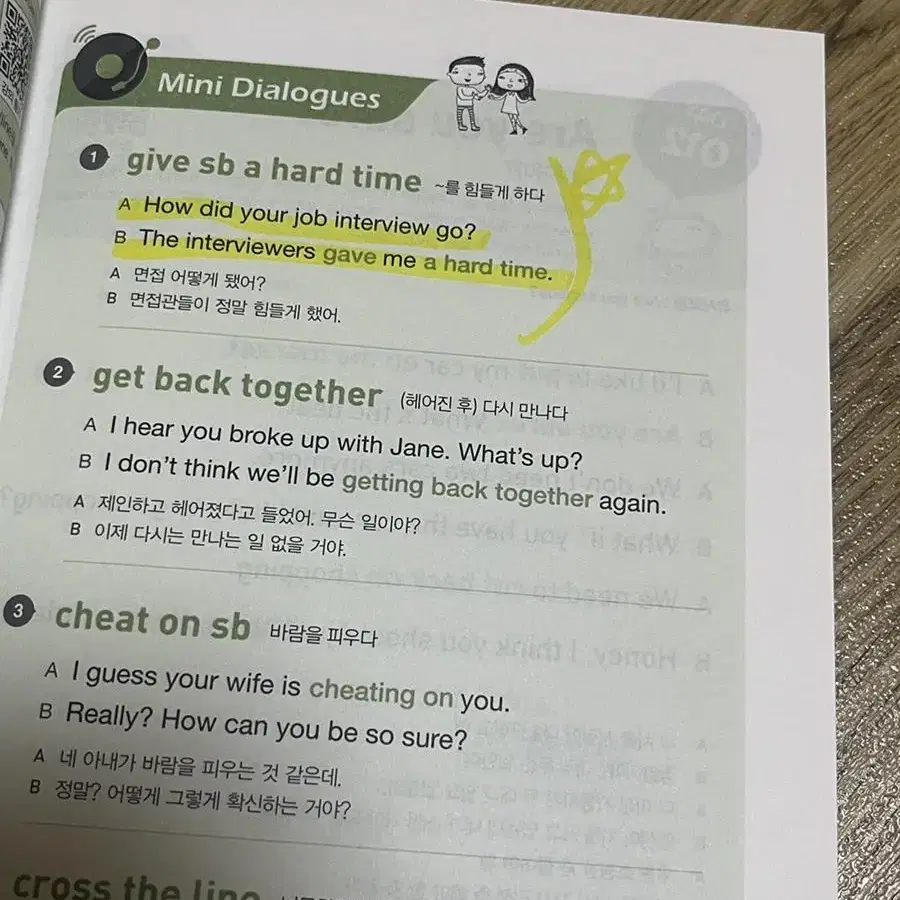 Mini Dialogues
1 give sb a hard time ~를 힘들게 하다
A How did your job interview go?
B The interviewers gave me a hard time.
A 면접 어떻게 됐어?
B 면접관들이 정말 힘들게 했어.
2 get back together (헤어진 후) 다시 만나다
A I hear you broke up with Jane. What's up?
B I don't think we'll be getting back together again.
A 제인하고 헤어졌다고 들었어. 무슨 일이야?
B 이제 다시는 만나는 일 없을 거야.
3 cheat on sb 바람을 피우다
A I guess your wife is cheating on you.
B Really? How can you be so sure?
A 네 아내가 바람을 피우는 것 같은데.
B 정말? 어떻게 그렇게 확신하는 거야?
cross the line